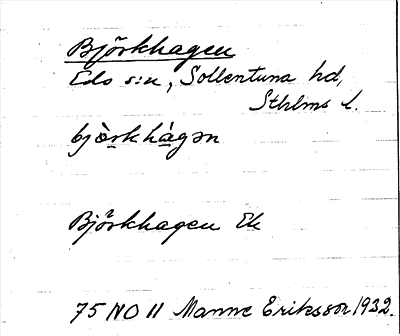 Björkhagen
Eds s:n, Sollentuna hd,
Sthlms l.
bjò̱rkhà̱gən
Björkhagen Ek
75 NO 11 Manne Eriksson 1932.